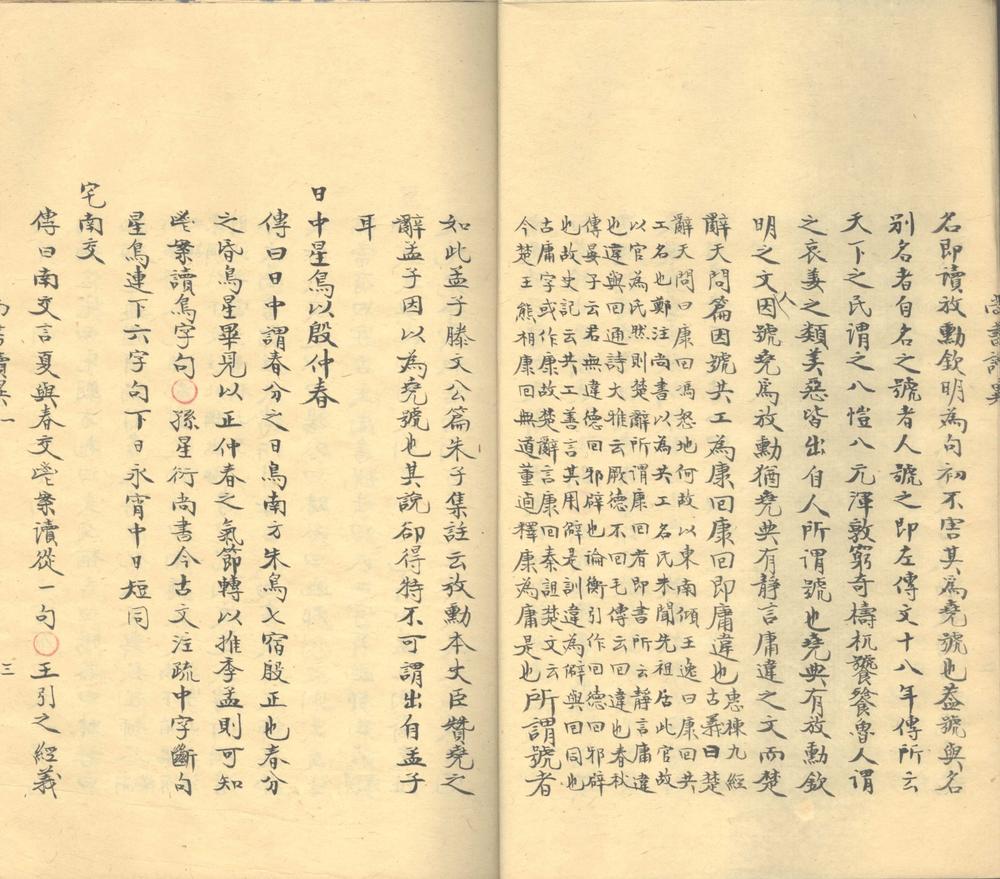 名即讀放勳欽明為句初不害其為堯號也蓋號與名
別名者自名之號者人號之即左傳文十八年傳所云
天下之民謂之八愷八元渾敦窮奇檮杌饕餮魯人謂
之哀姜之類美惡皆出自人所謂號也堯典有放勳欽
明之文因人號堯為放勳猶堯典有靜言庸違之文而楚
辭天問篇因號共工為康回康回即庸違也惠棟九經
古義曰楚
辭天問曰康回馮怒地何故以東南傾王逸曰康回共
工名也鄭注尚書以為共工名氏未聞先祖居此官故
以官為氏然則楚辭所謂康回者即書所云靜言庸違
也違與回通詩大雅云厥德不回毛傳云回違也春秋
傳晏子云君無違德回邪辟也論衡引作回德回邪辟
也故史記云共工善言其用僻是訓違為僻與回同也
古庸字或作康故楚辭言康回秦詛楚文云
今楚王熊相康回無道董逌釋康為庸是也所謂號者
如此孟子滕文公篇朱子集註云放勳本史臣贊堯之
辭孟子因以為堯號也其說卻得特不可謂出自孟子
耳
日中星鳥以殷仲春
傳曰日中謂春分之日鳥南方朱鳥七宿殷正也春分
之昏鳥星畢見以正仲春之氣節轉以推季孟則可知
鎣案讀鳥字句○孫星衍尚書今古文注疏中字斷句
星鳥連下六字句下日永宵中日短同
宅南交
傳曰南交言夏與春交鎣案讀從一句○王引之經義
三